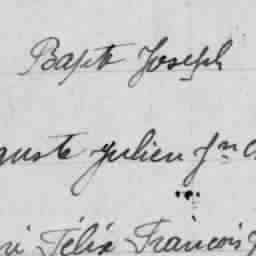 Bapte Joseph
guste Julien Jn
ri Félix François